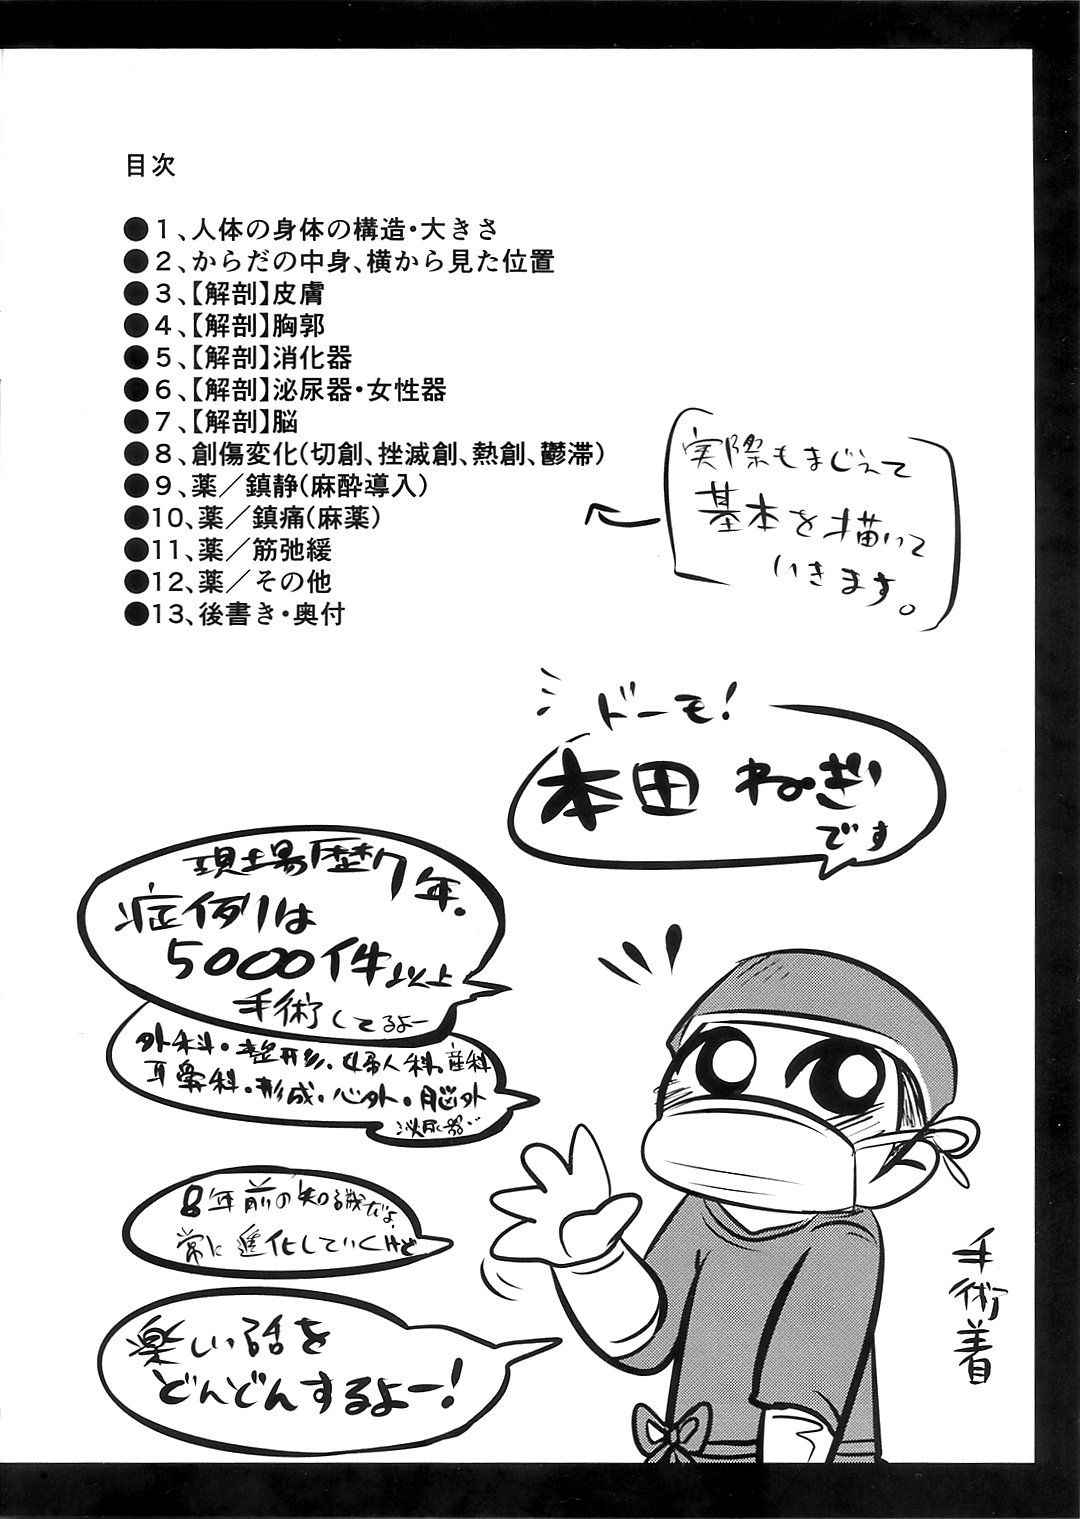 目次
●1、人体の身体の構造・大きさ
●2、からだの中身、横から見た位置
●3、【解剖】皮膚
●4、【解剖】胸郭
●5、【解剖】消化器
●6、【解剖】泌尿器・女性器
●7、【解剖】脳
●8、創傷変化(切創、挫滅創、熱創、鬱滞)
●9、薬／鎮静(麻酔導入)
●10、薬／鎮痛(麻薬)
●11、薬／筋弛緩
●12、薬／その他
●13、後書き・奥付
実際もまじえて
基本を描いて
いきます。
ドーモ!
本田 ねぎ
です
現場歴7年。
症例は
5000件以上
手術してるよー
外科・整形、婦人科。産科
耳鼻科・形成・心外・脳外
泌尿器
8年前の知識だよ。
常に進化していくけど
楽しい話を
どんどんするよー!
手術着